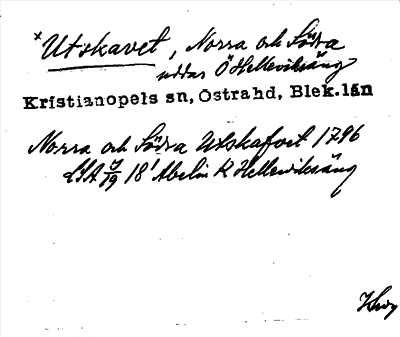 × Utskavet, Norra och Södra
uddar Ö Helleviksäng
Kristianopels sn, Östra hd, Blek. län
Norra och Södra Utskafvet 1796
LSA 18' Abelin K Hellewiksäng